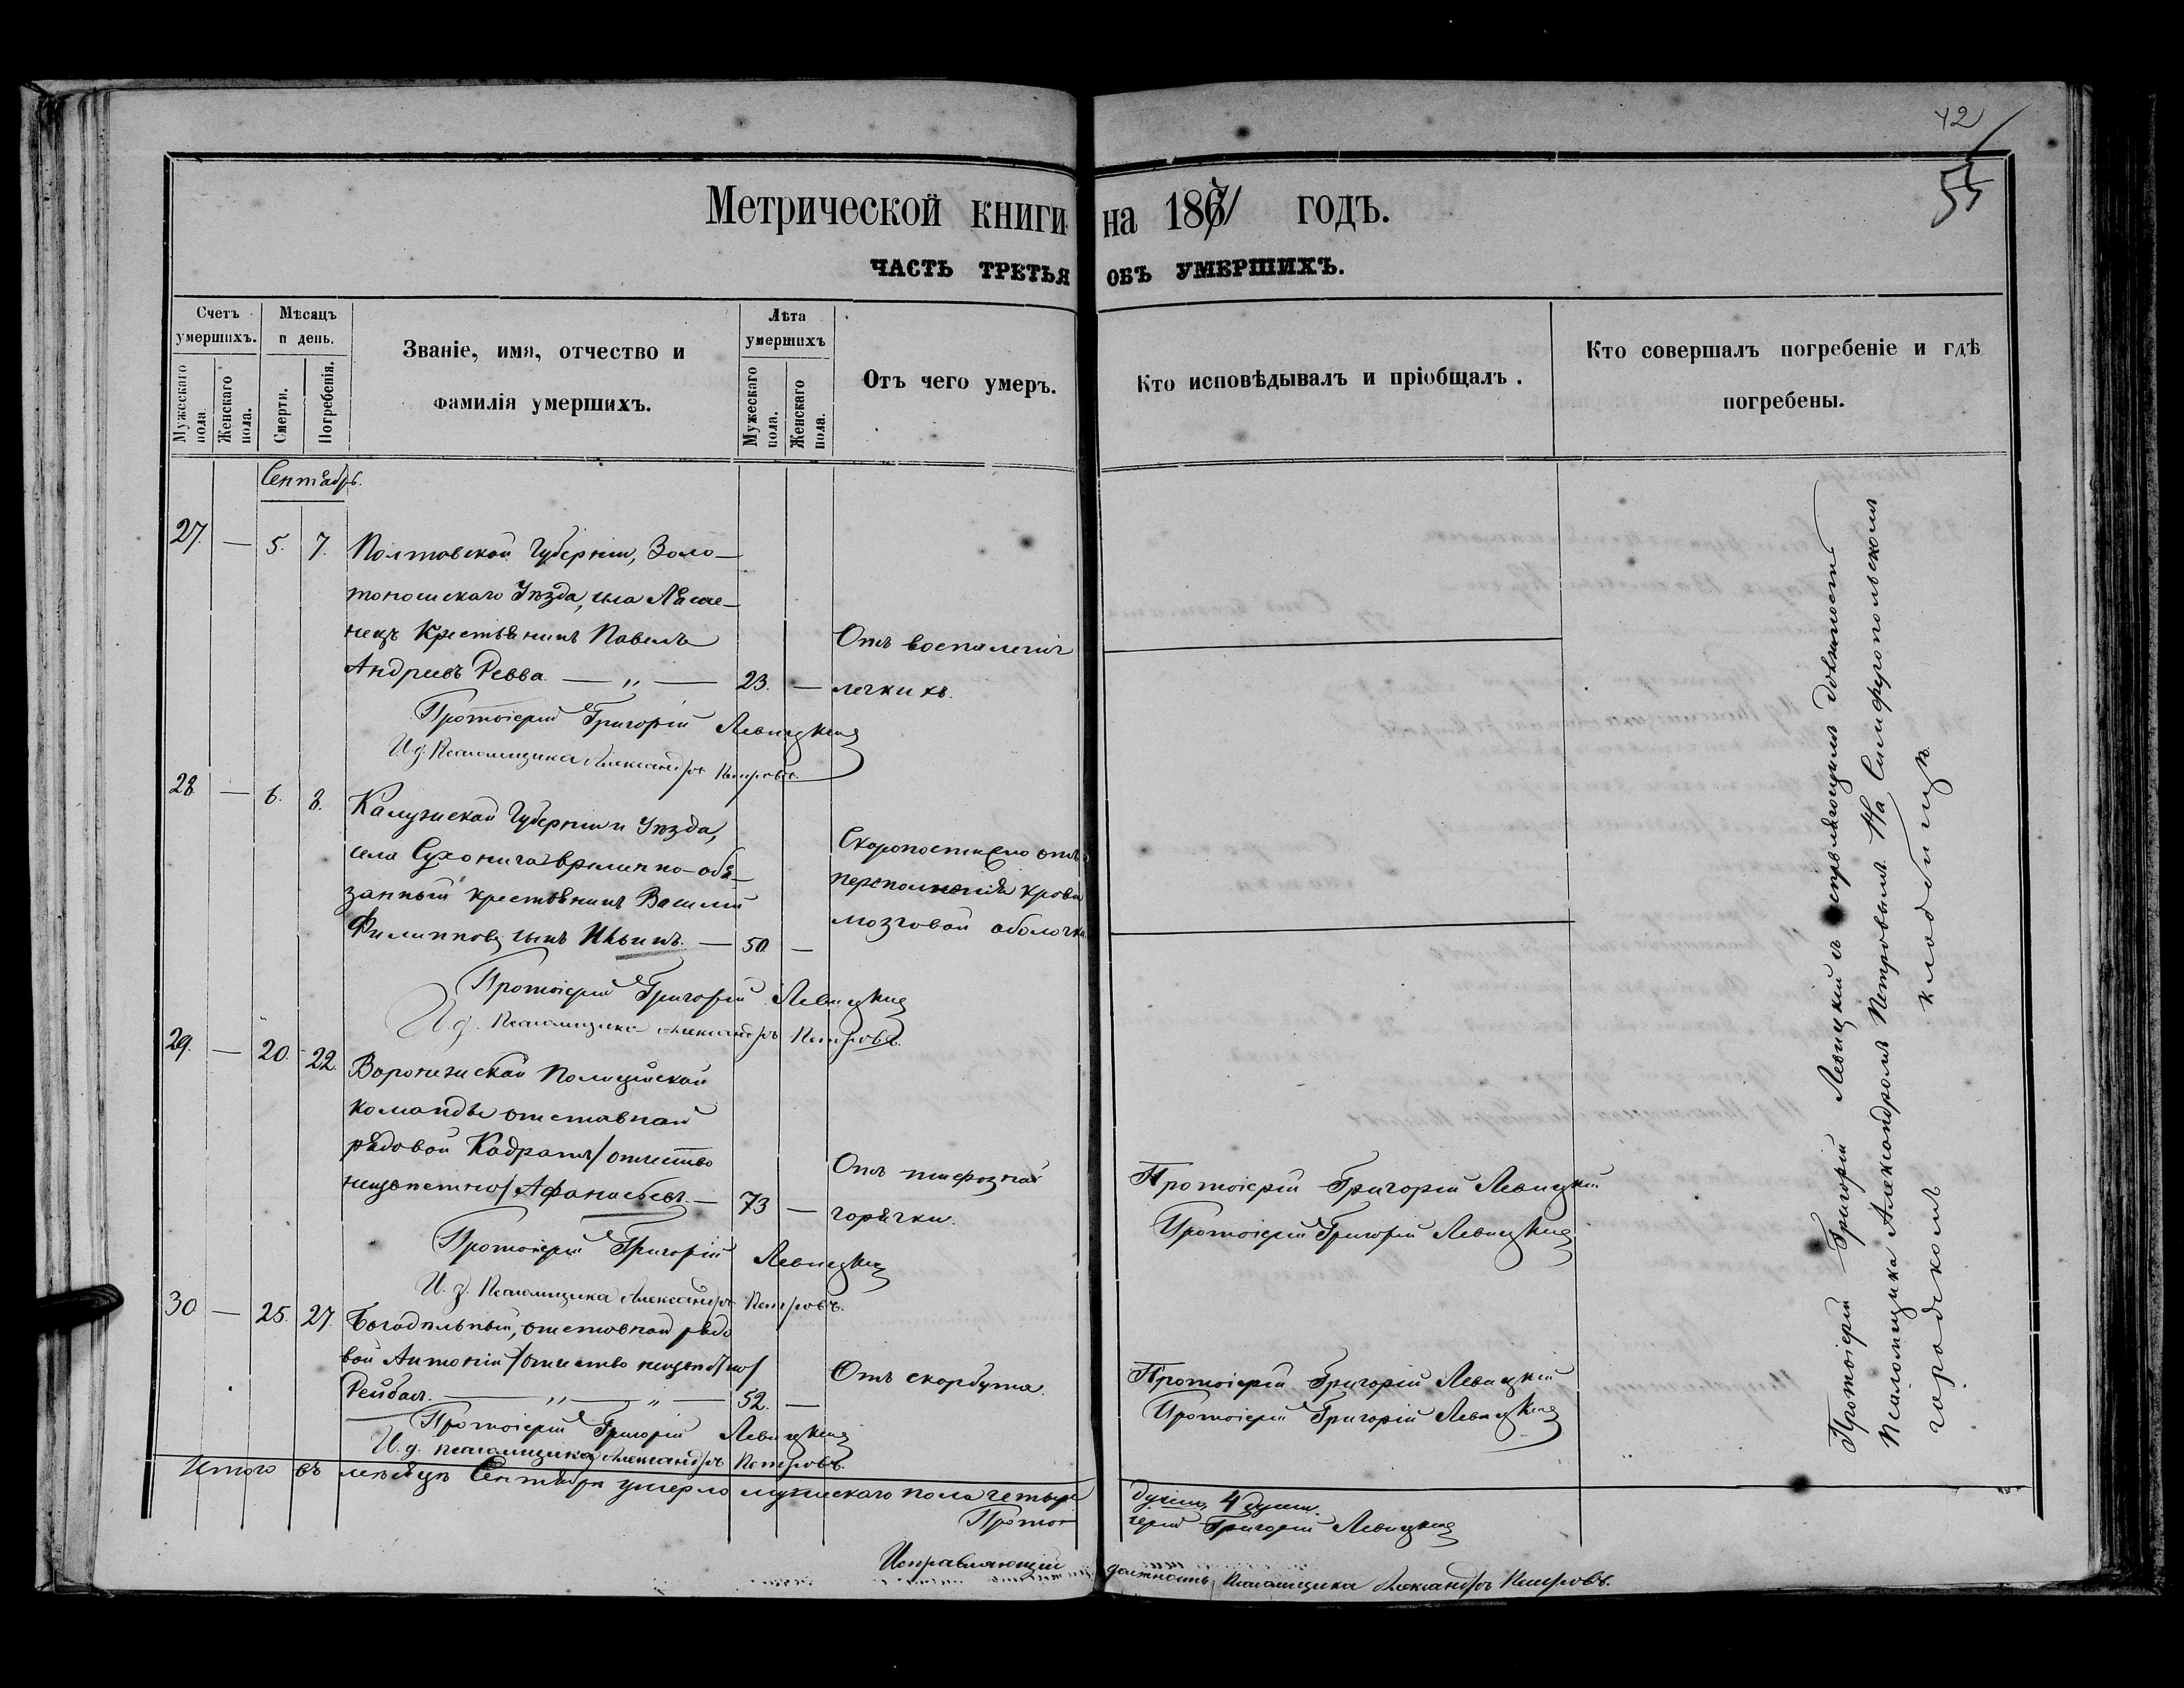 42
55
Метрической книги на 1871 годъ.
ЧАСТЬ ТРЕТЬЯ ОБЪ УМЕРШИХЪ.
Счетъ умершихъ.
Мужескаго пола.
Женскаго пола.
Мѣсяцъ и день.
Смерти.
Погребенія.
Званіе, имя, отчество и
фамилія умершихъ.
Лѣта умершихъ
Мужескаго пола.
Женскаго пола.
Отъ чего умеръ.
Кто исповѣдывалъ и пріобщалъ.
Кто совершалъ погребеніе и гдѣ
погребены.
Сентябрь.
27. — 5. 7. Полтовской Губерніи, Золо-
тоношскаго Уѣзда, села
нецъ Крестьянинъ Павелъ
Андреевъ Ревва. — „ — 23. —
Отъ воспаленія
легкихъ.
Протоіерей Григорій Левицкій
И.д. Псаломщика Александръ Петровъ.
28. — 6. 8. Калужской Губерніи и Уѣзда,
села Сухонича временно-обя-
занный крестьянинъ Василій
Филипповъ сынъ Ильинъ. — 50 —
Скоропостижно отъ
переполненія крови
мозговой оболочки.
Протоіерей Григорій Левицкій
И.д. Псаломщика Александръ Петровъ.
29. — 20. 22. Воронежской Полицейской
команды отставной
рядовой Кадратъ /отчество
неизвѣстно/ Афанасьевъ. — 73 —
Отъ тифозной
горячки.
Протоіерей Григорій Левицкій
Протоіерей Григорій Левицкій
Протоіерей Григорій Левицкій
И.д. Псаломщика Александръ Петровъ.
30 — 25. 27. Богадѣльный, отставной рядо
вой Антоній /отчество неизвѣстно/
Рейбал. — „ — „ — 52. —
Отъ скорбута.
Протоіерей Григорій Левицкій
Протоіерей Григорій Левицкій
Протоіерей Григорій Левицкій
И.д. псаломщика Александръ Петровъ.
Протоіерей Григорій Левицкій съ исправляющимъ должность
Псаломщика Александромъ Петровымъ. На Симферопольскомъ
городскомъ кладбищѣ.
Итого въ мѣсяцѣ Сентябрѣ умерло мужескаго пола четыре души, 4 души.
Протоіерей Григорій Левицкій
Исправляющій должность Псаломщика Александръ Петровъ.